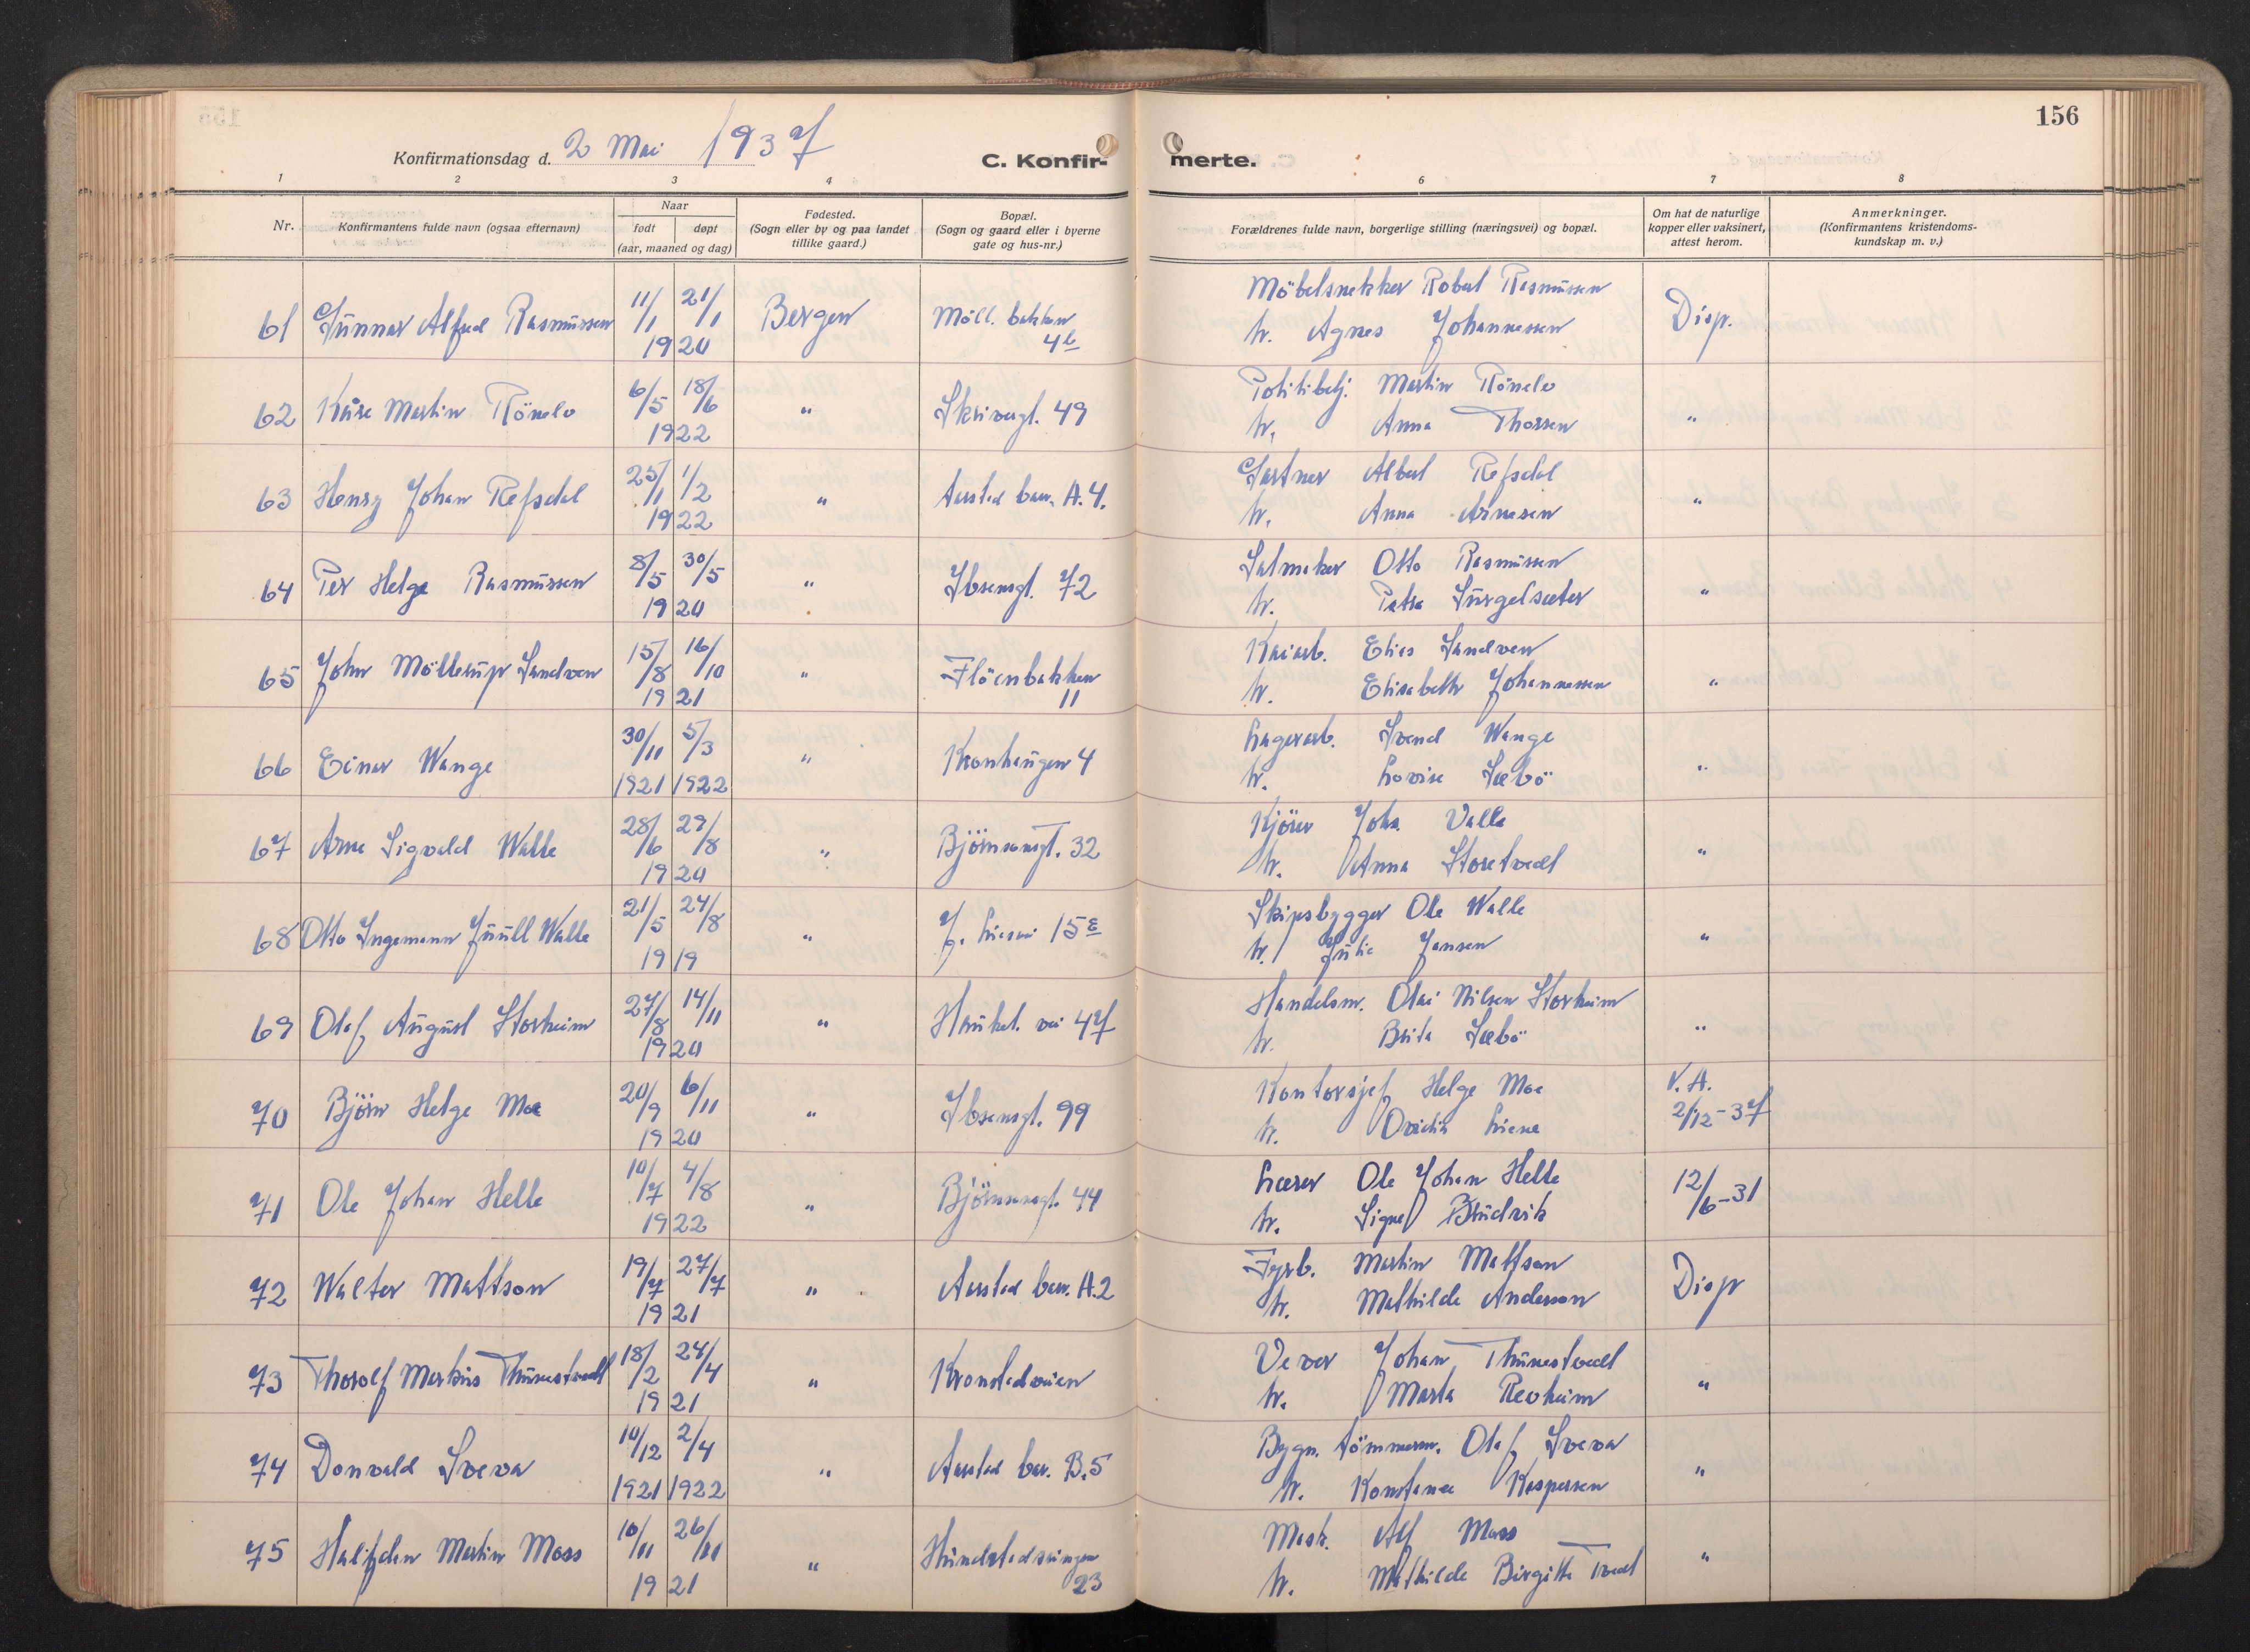 156
Konfirmationsdag d. 2 Mai 1937
C. Konfir-
merte.
1 2 3 4 6 7 8
Nr.
Konfirmantens fulde navn (ogsaa efternavn)
Naar
født døpt
(aar, maaned og dag)
Fødested.
(Sogn eller by og paa landet
tillike gaard.)
Bopæl.
(Sogn og gaard eller i byerne
gate og hus-nr.)
Forældrenes fulde navn, borgerlige stilling (næringsvei) og bopæl.
Om hat de naturlige
kopper eller vaksinert,
attest herom.
Anmerkninger.
(Konfirmantens kristendoms-
kundskap m. v.)
61 Gunnar Alfred Rasmussen 11/1 21/1 1920 Bergen Möll. bakken 4b
Möbelsnekker Robert Rasmussen Disp.
h. Agnes Johannessen
62 Kåre Martin Rönelv 6/5 18/6 1922 " Skiversgt. 49
Politibetj. Martin Rönelv "
h. Anna Thorsen
63 Henry Johan Refsdal 25/1 1/2 1922 " Aarstad barr. A.4.
Gartner Albert Refsdal "
h. Anna Arnesen
64 Per Helge Rasmussen 8/5 30/5 1920 " Ibsensgt. 72
Salmaker Otto Rasmussen "
h. Petra
65 John Möllerup Sandven 15/8 16/10 1921 " Flöenbakken 11
Kaiarb. Elias Sandven "
h. Elisabeth Johannessen
66 Einar Wange 30/11 1921 5/3 1922 " Kronhaugen 4
Lagerarb. Svend Wange "
h. Lovise Sæbö
67 Arne Sigvald Walle 28/6 29/8 1920 " Björnsonsgt. 32
Kjörer Johs. Valle "
h. Anna Storetvedt
68 Otto Ingemann Juull Walle 21/5 24/8 1919 " J. Liesvei 15E
Skipsbygger Ole Walle "
h. Julie Jansen
69 Olaf August Storheim 27/8 14/11 1920 " Haukel. vei 47
Handelsm. Olai Nilsen Storheim "
h. Brita Sæbö
70 Björn Helge Moe 20/9 6/11 1920 " Ibsensgt. 99
Kontorsjef Helge Moe V.A.
h. Ovidia 2/12-37
71 Ole Johan Helle 10/7 4/8 1922 " Björnsonsgt. 44
Lærer Ole Johan Helle 12/6-31
h. Signe
72 Walter Mattson 19/7 27/7 1921 " Aarstad barr. A.2
Fyrb. Martin Mattson Disp
h. Mathilde Anderson
73 Thorolf Markus Thunestvedt 18/2 24/4 1921 " Kronstadveien
Vever Johan Thunestvedt "
h. Marta Revheim
74 Donvald Sveva 10/12 1921 2/4 1922 " Aarstad bar. B.5
Bygn. tömmerm. Olaf Sveva "
h. Konstanse Kaspersen
75 Halfdan Martin Moss 10/11 26/11 1921 " 23
Mask. Alf Moss "
h. Mathilde Birgitte Tvedt